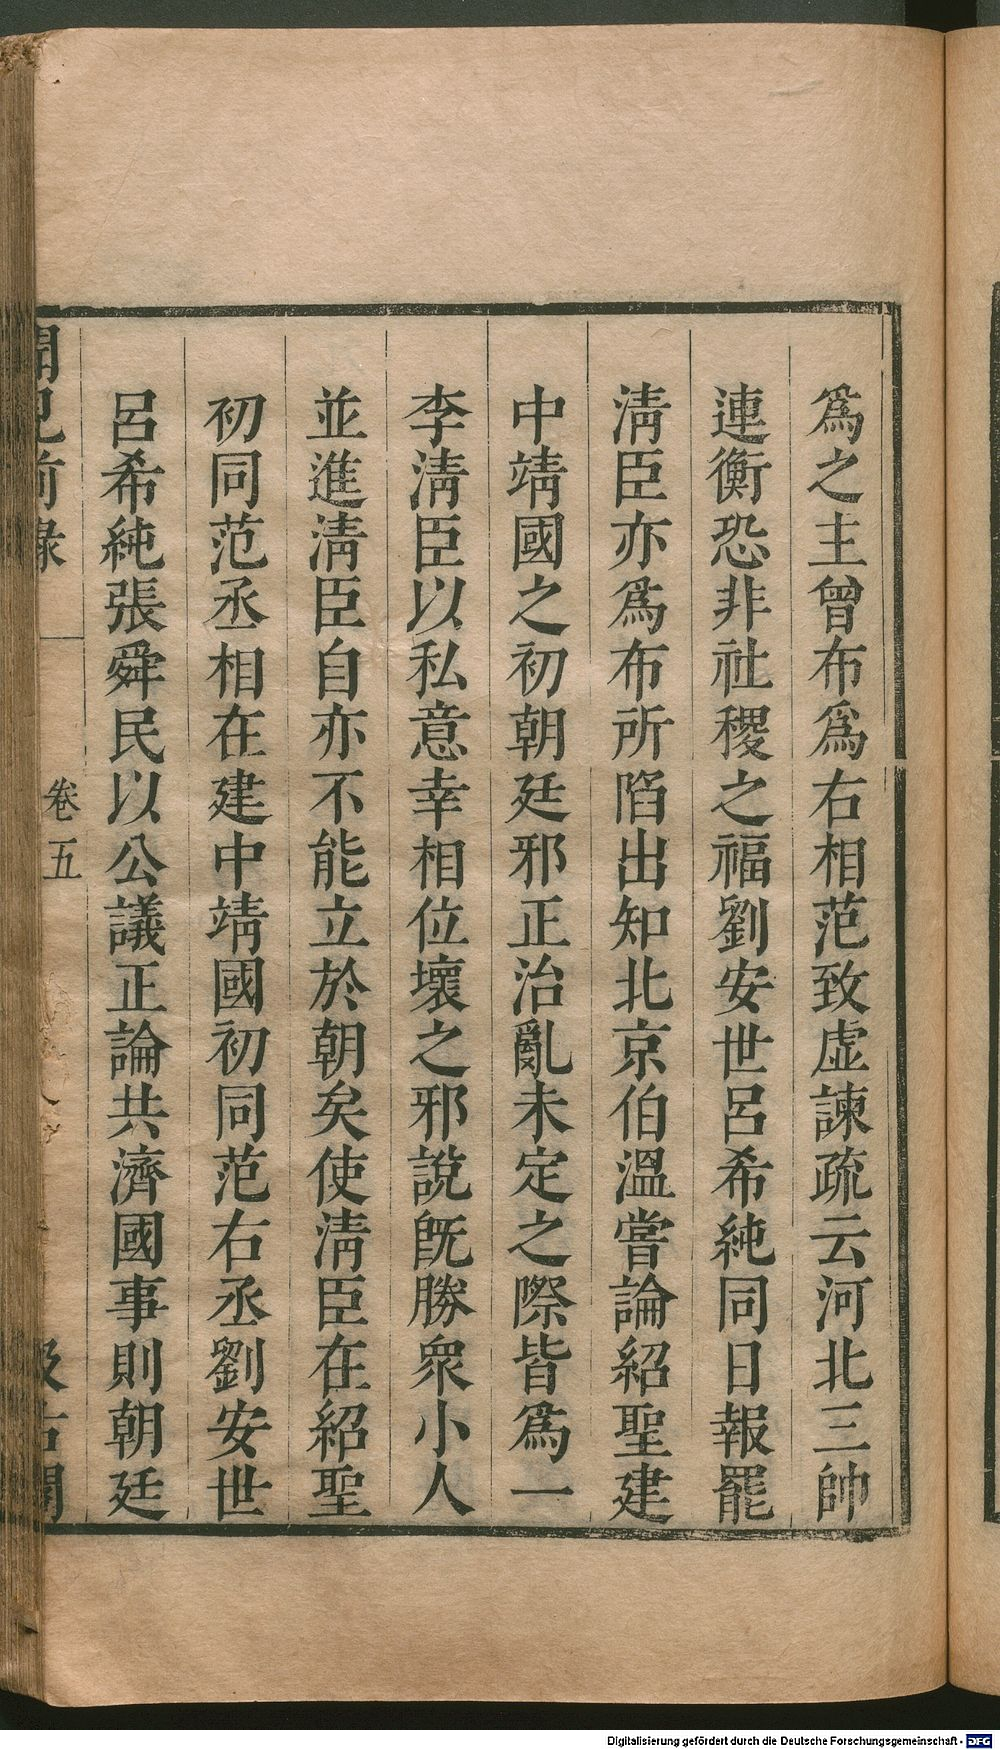 爲之主曾布爲右相范致虛諫疏云河北三帥
連衡恐非社稷之福劉安世呂希純同日報罷
淸臣亦爲布所陷出知北京伯溫嘗論紹聖建
中靖國之初朝廷邪正治亂未定之際皆爲一
李淸臣以私意幸相位壞之邪說旣勝衆小人
並進淸臣自亦不能立於朝矣使淸臣在紹聖
初同范丞相在建中靖國初同范右丞劉安世
呂希純張舜民以公議正論共濟國事則朝廷
聞見前錄
卷五
汲古閣
Digitalisierung gefördert durch die Deutsche Forschungsgemeinschaft - DFG